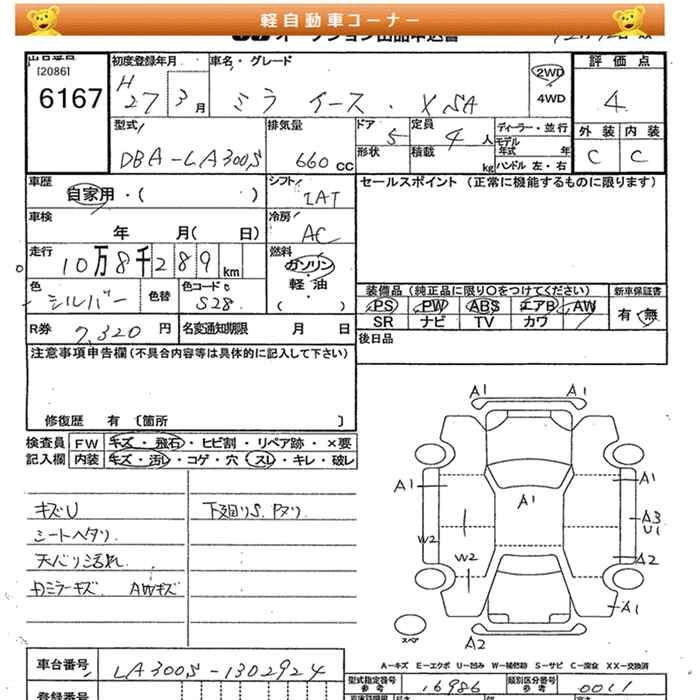 軽自動車コーナー
オークション出品申込書
出品番号 初度登録年月 車名・グレード 評価点
[2086]
6167 H27 3月 ミラ イース・XSA 2WD 4WD 4
外装 内装
C C
型式 DBA-LA300S 排気量 660 CC ドア 5 定員 4 人 ディーラー・並行
モデル年式 年
形状 積載 kg ハンドル 左・右
車歴 自家用・( ) シフト IAT セールスポイント (正常に機能するものに限ります)
車検 年 月( 日) 冷房 AC
走行 10万8千289 km 燃料 ガソリン・軽油・( )
色 シルバー 色替 色コード S28
装備品(純正品に限り〇をつけてください) 新車保証書
PS PW ABS エアB AW 有・無
SR ナビ TV カワ
R券 7,320 円 名変通知期限 月 日 後日品
注意事項申告欄(不具合内容等は具体的に記入して下さい)
修復歴 有 〔箇所 〕
検査員 FW キズ・飛石・ヒビ割・リペア跡・×要
記入欄 内装 キズ・汚レ・コゲ・穴・スレ・キレ・破レ
キズU 下廻りS.Pヌリ
シートヘタリ
天バリ汚れ
Dミラーキズ AWキズ
A1 A1
A1 A1 A1
A3
U1
W2
W2 A2
A1
スペア
A2
A-キズ E-エクボ U-凹み W-補修跡 S-サビ C-腐食 XX-交換済
車台番号 LA300S-1302924
型式指定番号 参考 16986 類別区分番号 参考 0011
登録番号